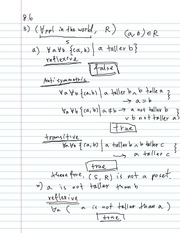 8.6
3) (∀ppl in the world, R) (a, b) ∈ R
S
a) ∀a∀b {(a,b) | a taller b}
reflexive
false
Antisymmetric
∀a∀b {(a,b) | a taller b ∧ b taller a}
→ a = b
∀a∀b {(a,b) | a≠b → a not taller b
∨ b not taller a}
true
transitive
∀a∀b {(a,b) | a taller b ∧ b taller c}
→ a taller c
true
therefore, (S, R) is not a poset
a is not taller than b
reflexive
∀a ( a is not taller than a)
true